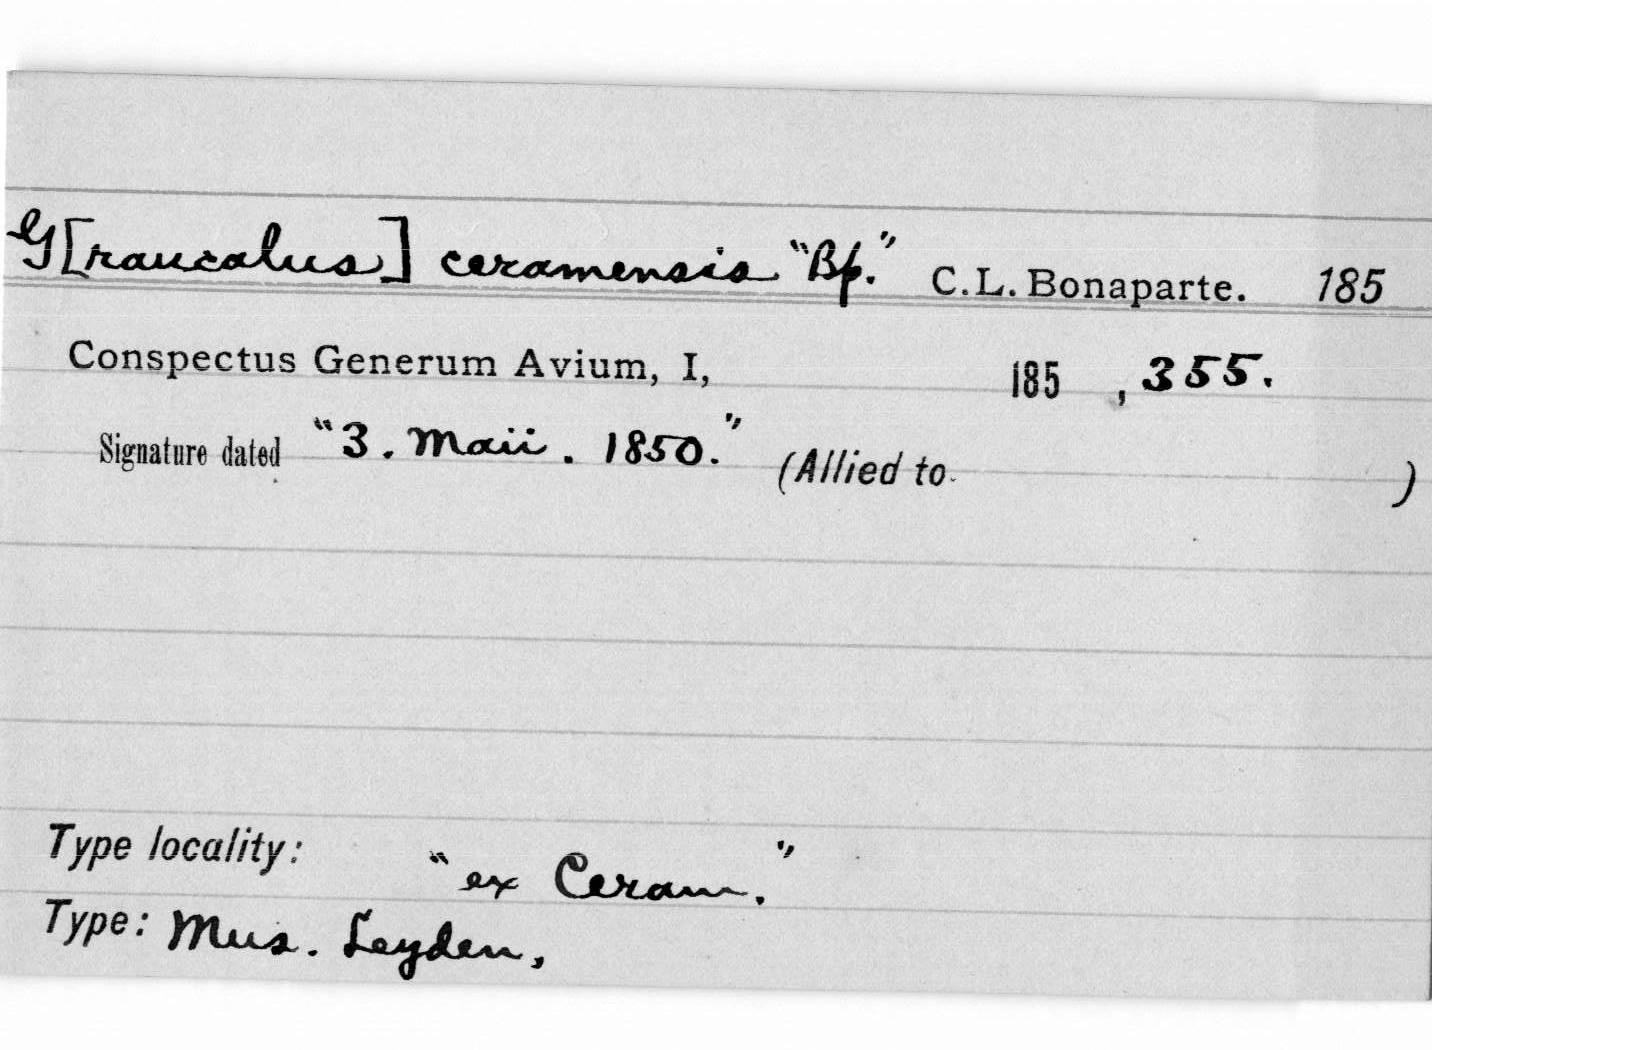 G[raucalus] ceramensis "Bp." C.L. Bonaparte. 185
Conspectus Generum Avium, I, 185 , 355.
Signature dated "3. Maii. 1850." (Allied to )
Type locality: "ex Ceram."
Type: Mus. Leyden,